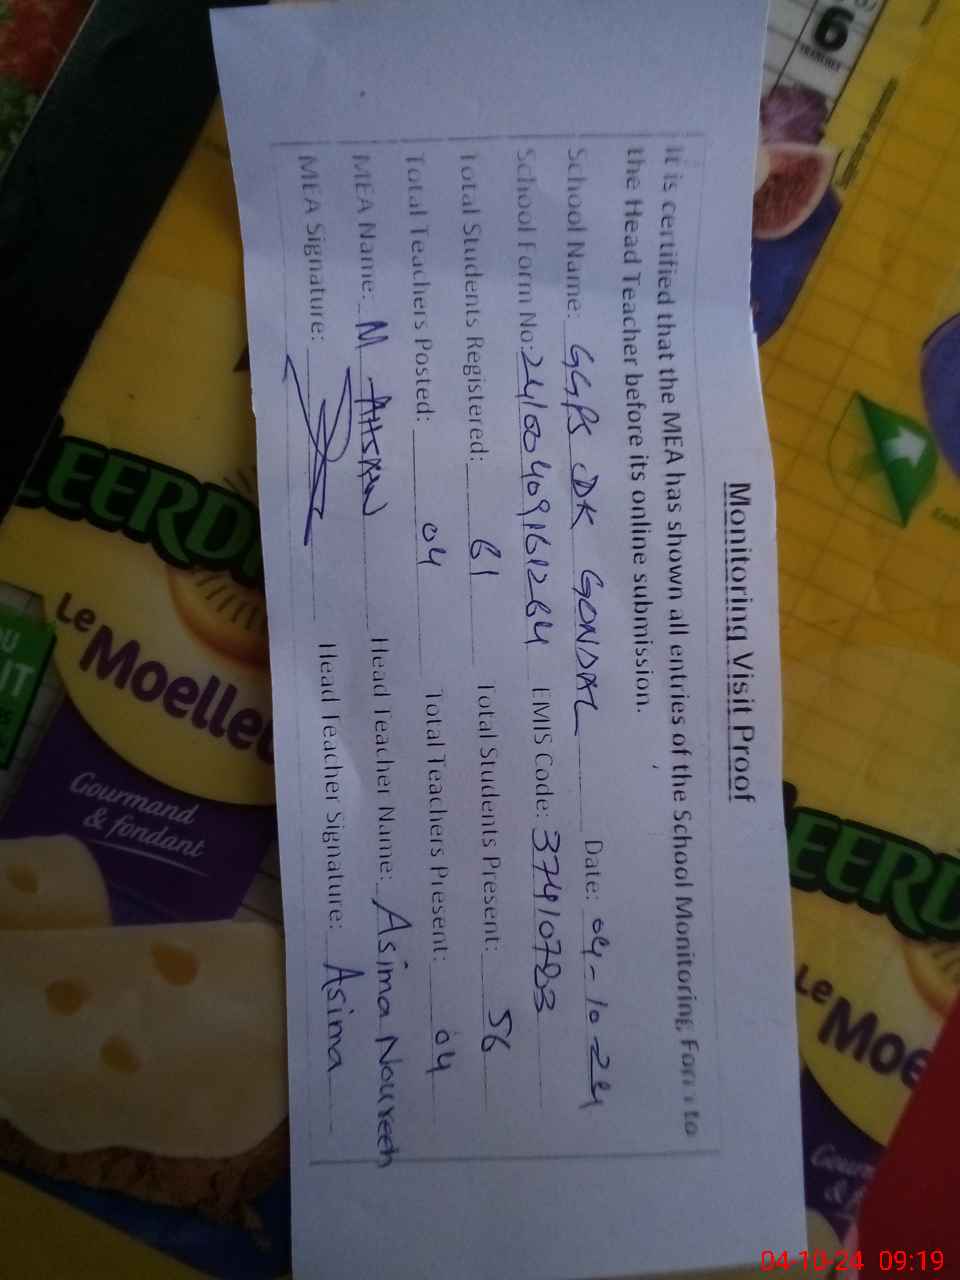 Monitoring Visit Proof
It is certified that the MEA has shown all entries of the School Monitoring Form to
the Head Teacher before its online submission.
School Name: GGPS DK GONDAL Date: 04-10-24
School Form No: 24100409161264 EMIS Code: 37410783
Total Students Registered: 61 Total Students Present: 56
Total Teachers Posted: 04 Total Teachers Present: 04
MEA Name: M AHSAN Head Teacher Name: Asima Noureen
MEA Signature: Head Teacher Signature: Asima
6
LEERD
Le Moelleu
Gourmand
& fondant
EERD
Le Moe
04-10-24 09:19